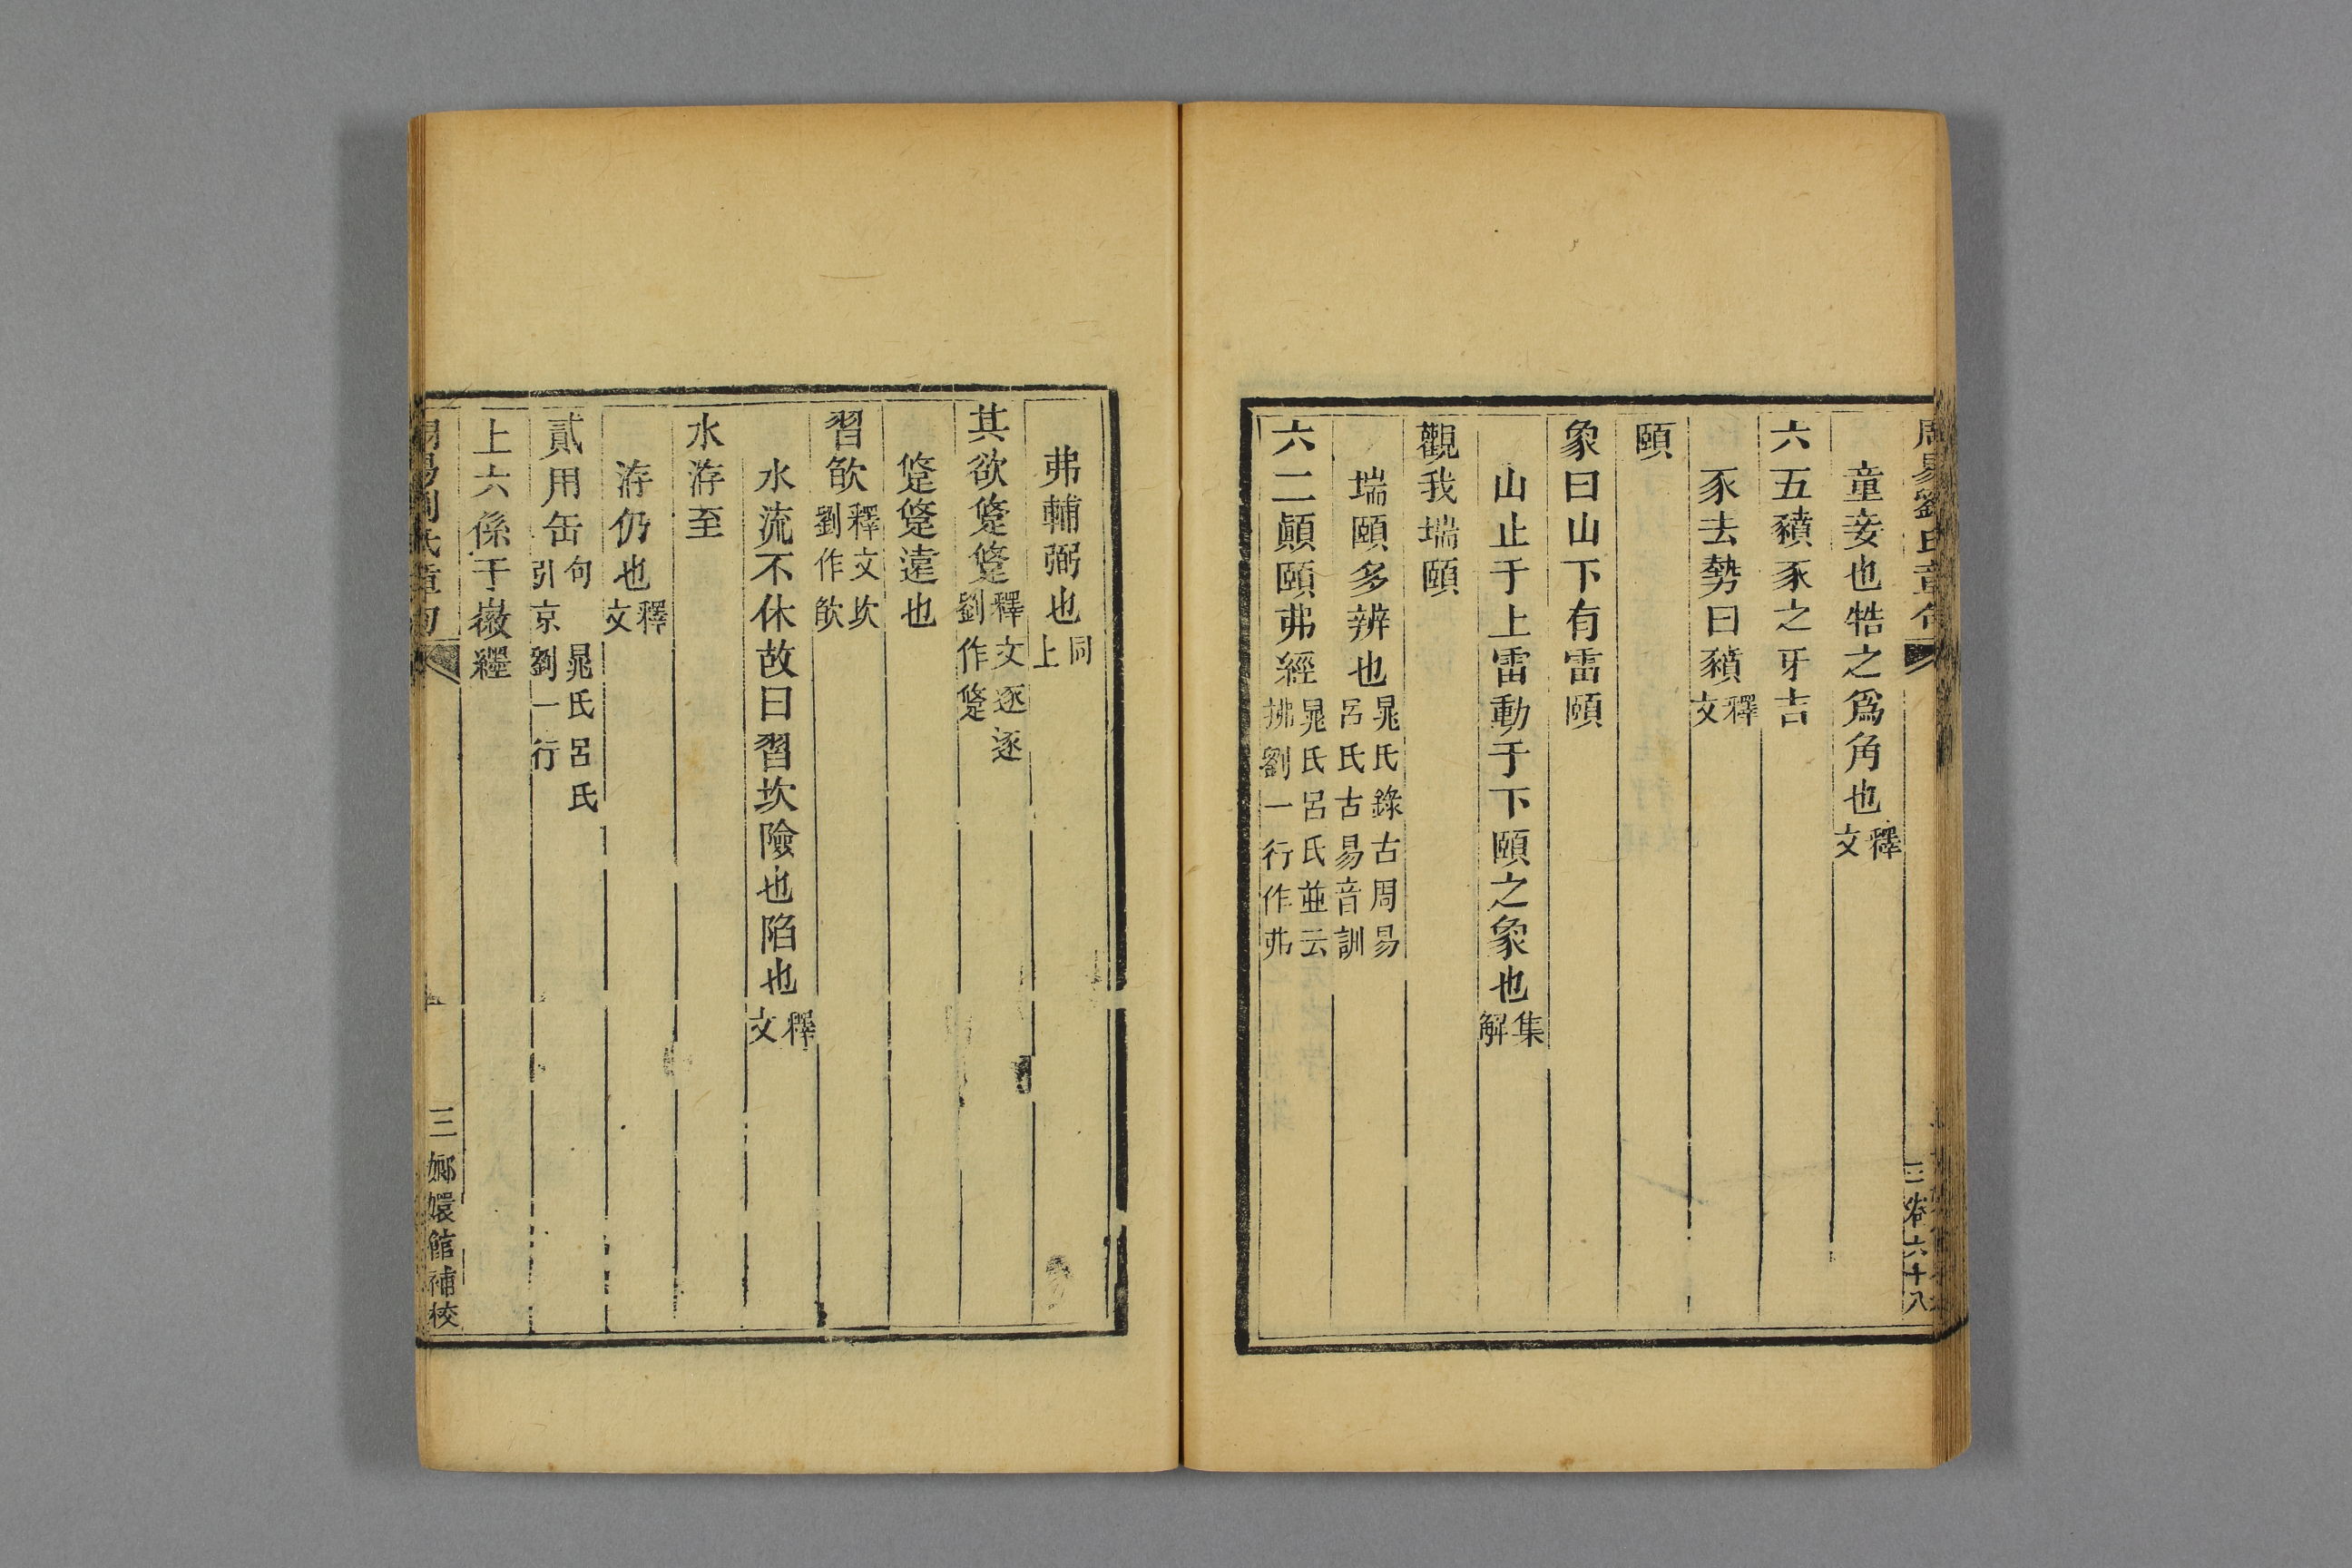 周易劉氏章句
三 卷六十八
童妾也牿之爲角也釋文
六五豶豕之牙吉
豕去勢曰豶釋文
頤
象曰山下有雷頤
山止于上雷動于下頤之象也集解
觀我揣頤
揣頤多辨也晁氏錄古周易呂氏古易音訓
六二顚頤弗經晁氏呂氏並云拂劉一行作弗
弗輔弼也同上
其欲跾跾釋文逐逐劉作跾
跾跾遠也
習欿釋文坎劉作欿
水流不休故曰習坎險也陷也釋文
水洊至
洊仍也釋文
貳用缶句引京劉一行晁氏呂氏
上六係于徽纆
周易劉氏章句
三 嫏嬛館補校